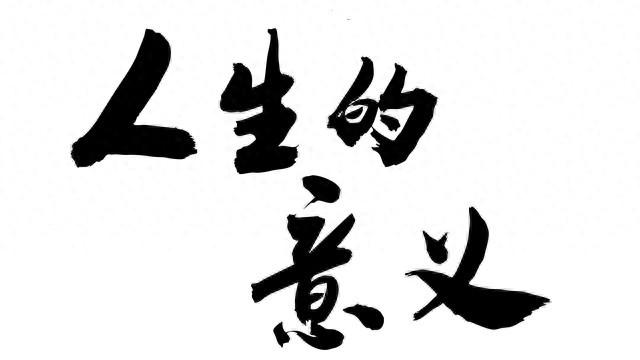 人生的
意义